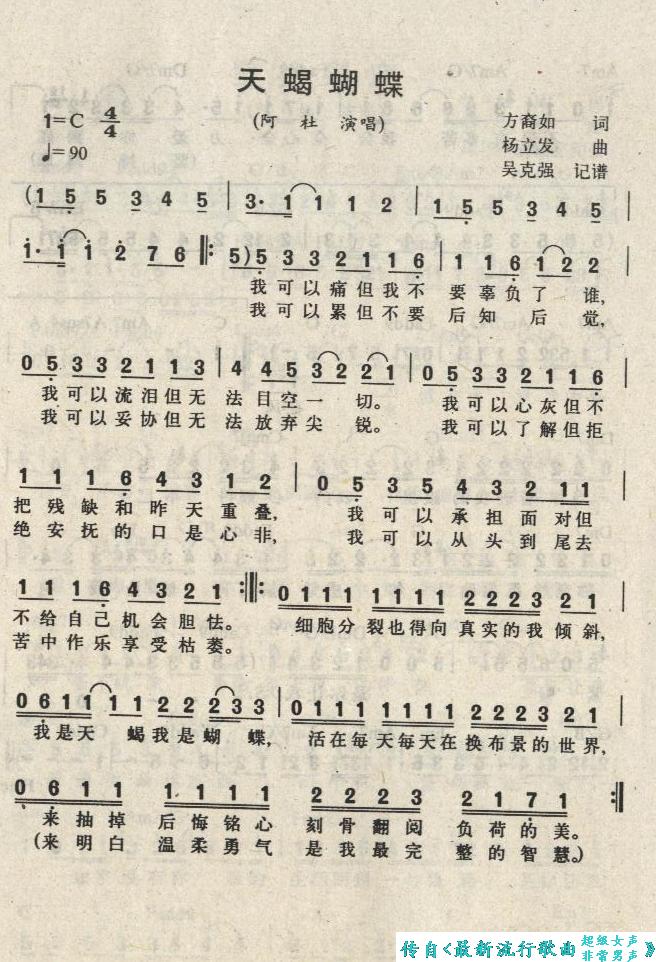 天蝎蝴蝶
1=C 4/4
(阿杜 演唱)
方裔如 词
♩=90
杨立发 曲
吴克强 记谱
(1 5 5 3 4 5 | 3· 1 1 1 2 | 1 5 5 3 4 5 |
1· 1 1 2 7 6 ‖: 5) 5 3 3 2 1 1 6 | 1 1 6 1 2 2 |
我可以痛但我不 要辜负了 谁,
我可以累但不要 后知 后 觉,
0 5 3 3 2 1 1 3 | 4 4 5 3 2 2 1 | 0 5 3 3 2 1 1 6 |
我可以流泪但无 法目空一 切。 我可以心灰但不
我可以妥协但无 法放弃尖 锐。 我可以了解但拒
1 1 1 6 4 3 1 2 | 0 5 3 5 4 3 2 1 1 |
把残缺和昨天重叠, 我可以承担面对但
绝安抚的口是心非, 我可以从头到尾去
1 1 1 6 4 3 2 1 :‖: 0 1 1 1 1 1 1 1 2 2 2 3 2 1 |
不给自己机会胆怯。 细胞分裂也得向真实的我倾斜,
苦中作乐享受枯萎。
0 6 1 1 1 1 2 2 2 3 3 | 0 1 1 1 1 1 1 1 2 2 2 3 2 1 |
我是天 蝎我是蝴 蝶, 活在每天每天在换布景的世界,
0 6 1 1 1 1 1 1 2 2 2 3 2 1 7 1 :‖
来抽掉 后悔铭心 刻骨翻阅 负荷的美。
(来明白 温柔勇气 是我最完 整的智慧。)
传自<最新流行歌曲 超级女声 非常男声》